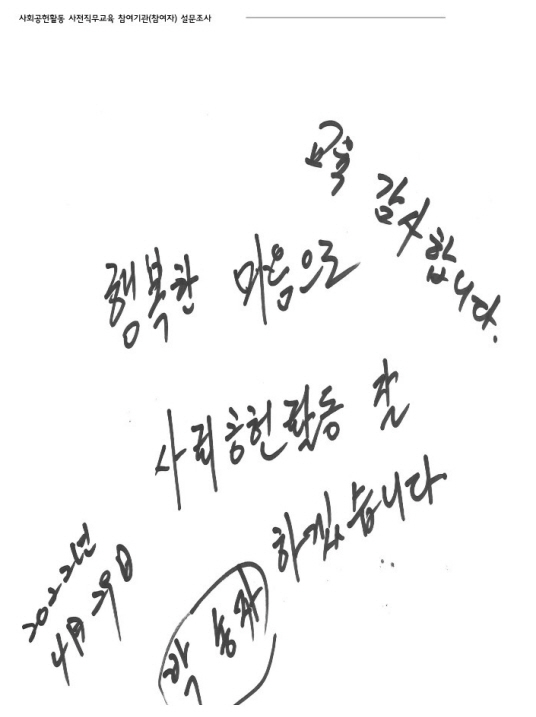 사회공헌활동 사전직무교육 참여기관(참여자) 설문조사
교육 감사합니다.
행복한 마음으로
사회공헌활동 잘
하겠습니다
2022년
4月 29日